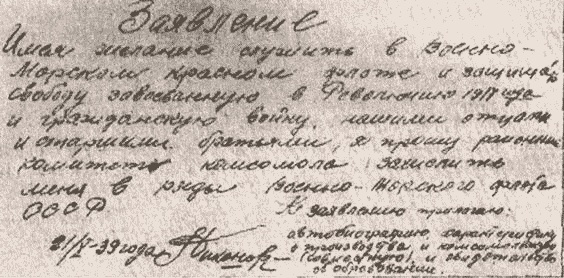 Заявление
Имея желание служить в Военно-
Морском Красном флоте и защища
свободу завоеванную в Революцию 1917 года
и гражданскую войну нашими отцами
и старшими братьями, я прошу районный
комитет комсомола зачислить
меня в ряды Военно-Морского флота
СССР
К заявлению прилагаю:
автобиографию, характеристику
с производства и комсомольскую
(совместную) и свидетельство
об образовании.
21/X-39 года